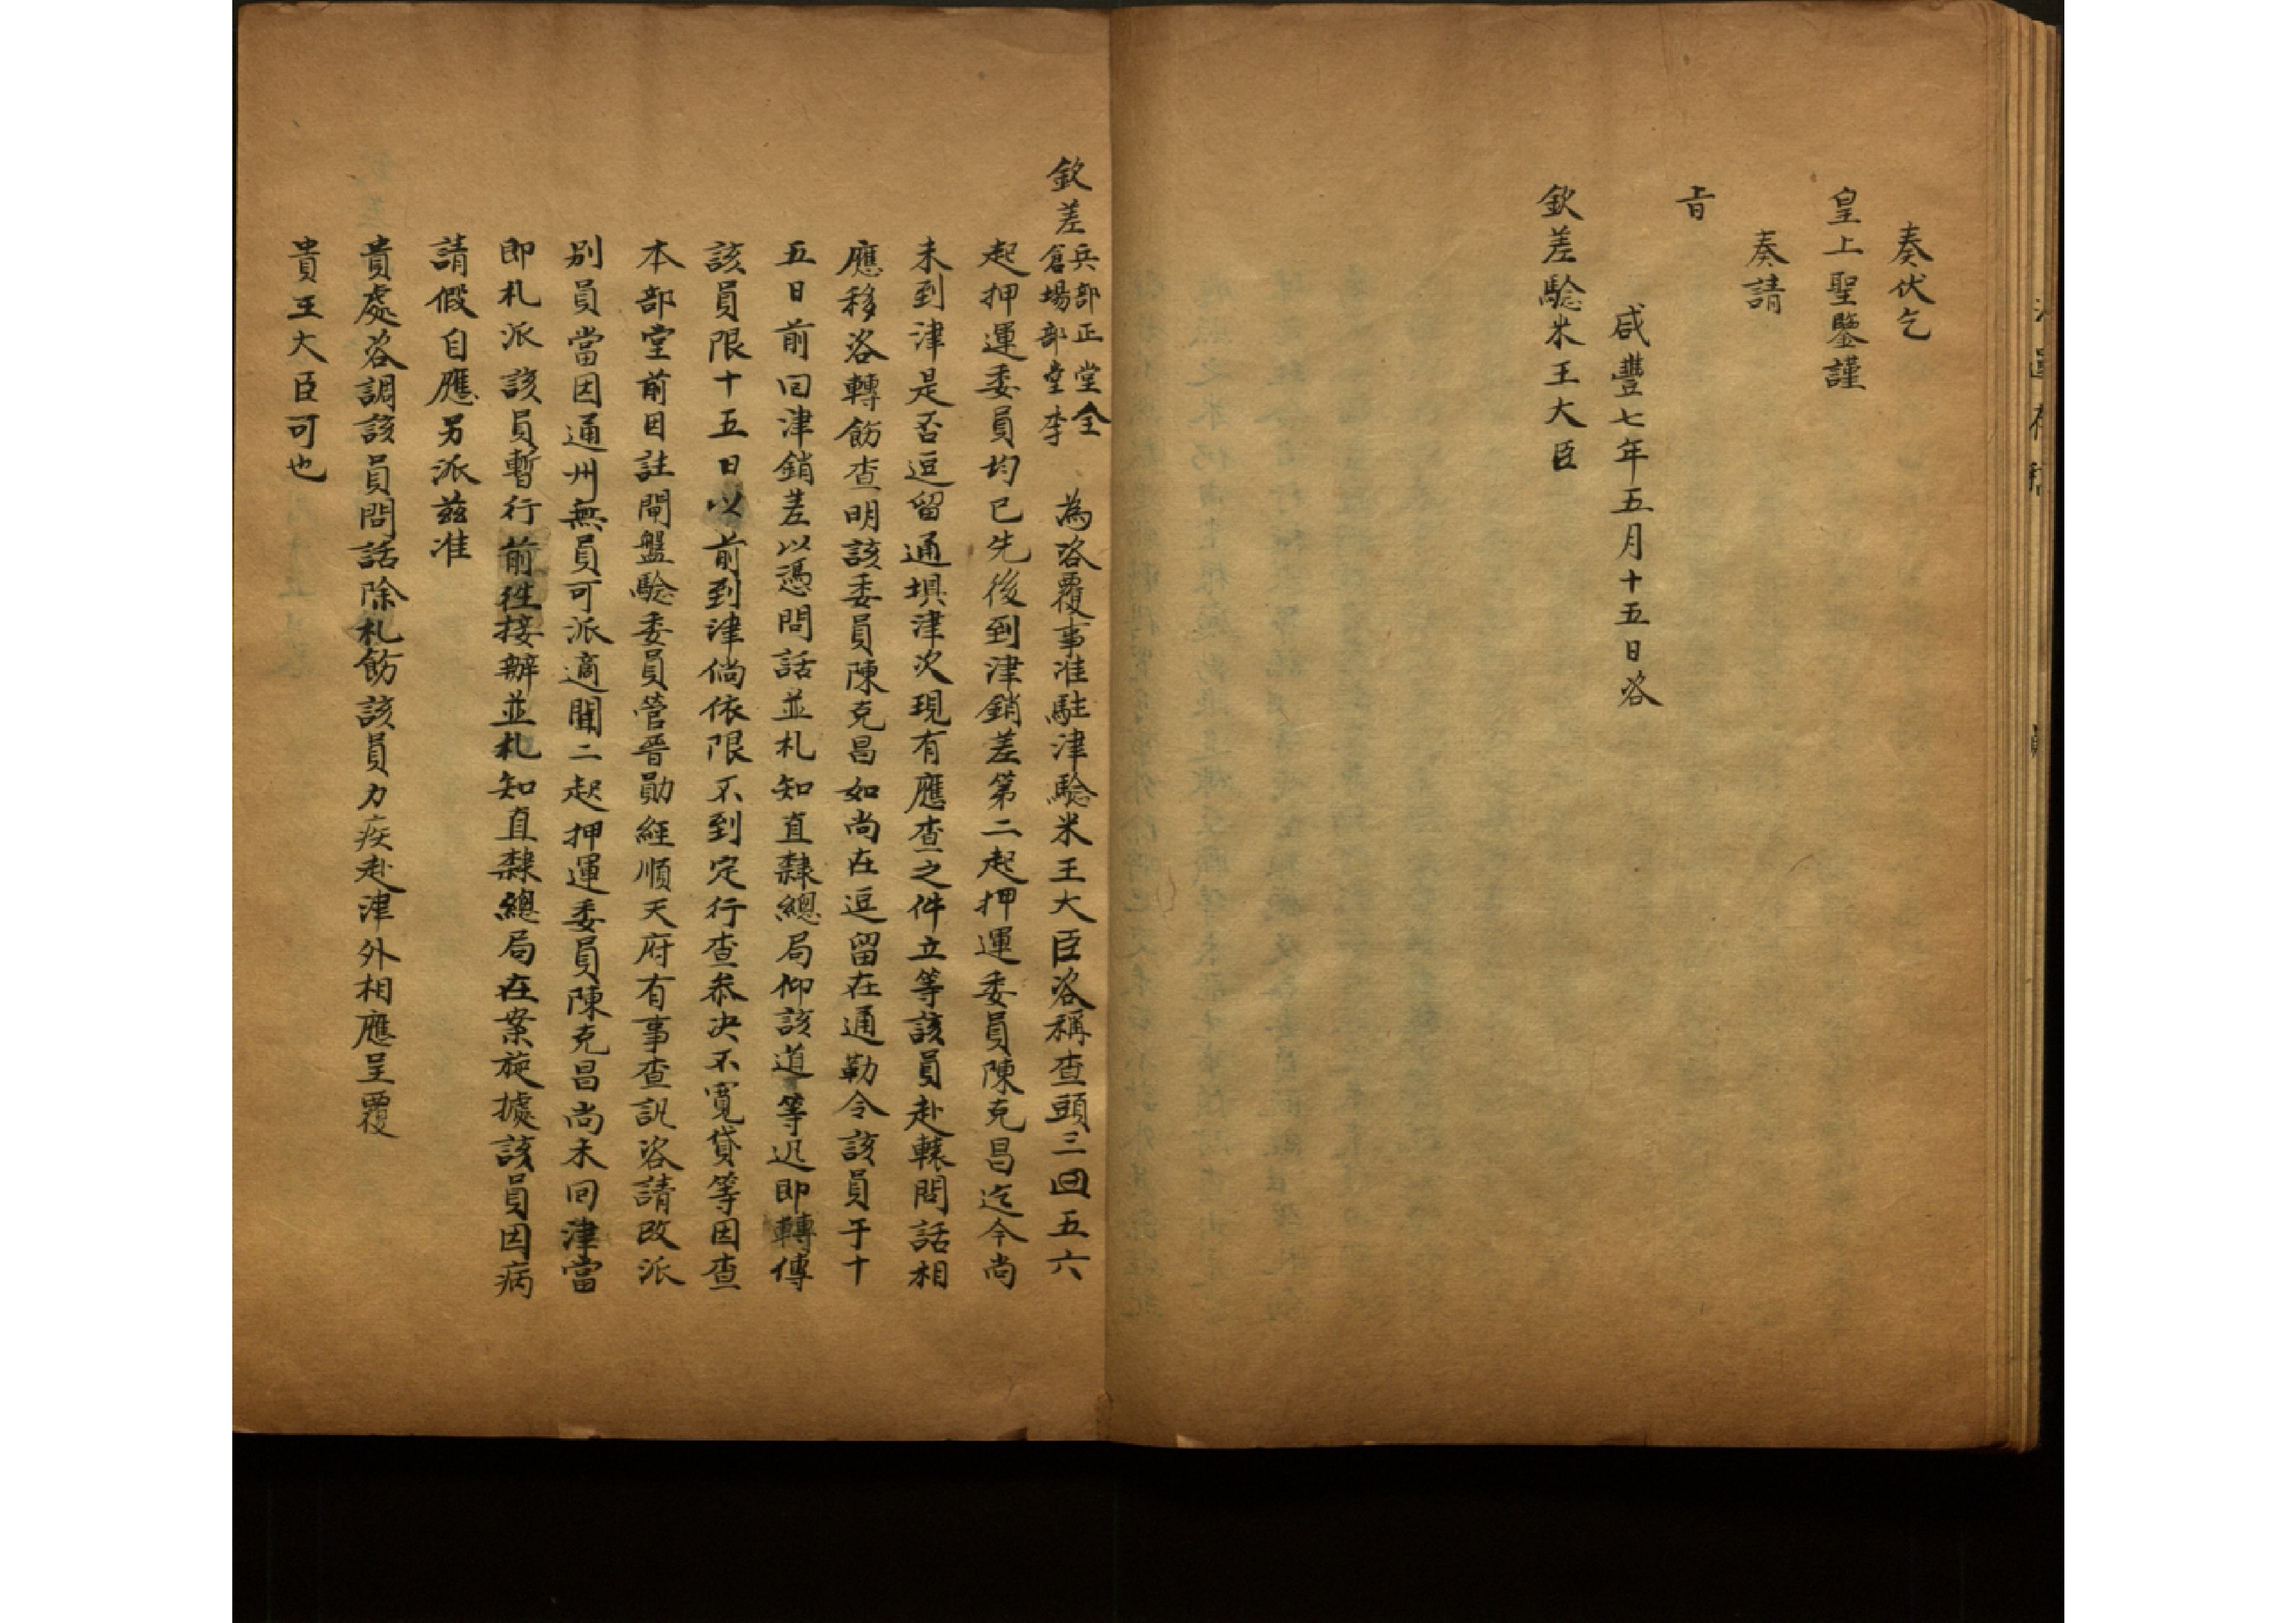 奏伏乞
皇上聖鑒謹
奏請
旨
咸豐七年五月十五日咨
欽差驗米王大臣
欽差兵部正堂全倉場部堂李 為咨覆事准駐津驗米王大臣咨稱查頭三四五六
起押運委員均已先後到津銷差第二起押運委員陳克昌迄今尚
未到津是否逗留通壩津次現有應查之件立等該員赴轅問話相
應移咨轉飭查明該委員陳克昌如尚在逗留在通勒令該員于十
五日前回津銷差以憑問話並札知直隸總局仰該道等迅即轉傳
該員限十五日以前到津倘依限不到定行查叅決不寬貸等因查
本部堂前因註閘盤驗委員管晋勛經順天府有事查訊咨請改派
別員當因通州無員可派適聞二起押運委員陳克昌尚未回津當
即札派該員暫行前往接辦並札知直隸總局在案旋據該員因病
請假自應另派茲准
貴處咨調該員問話除札飭該員力疾赴津外相應呈覆
貴王大臣可也